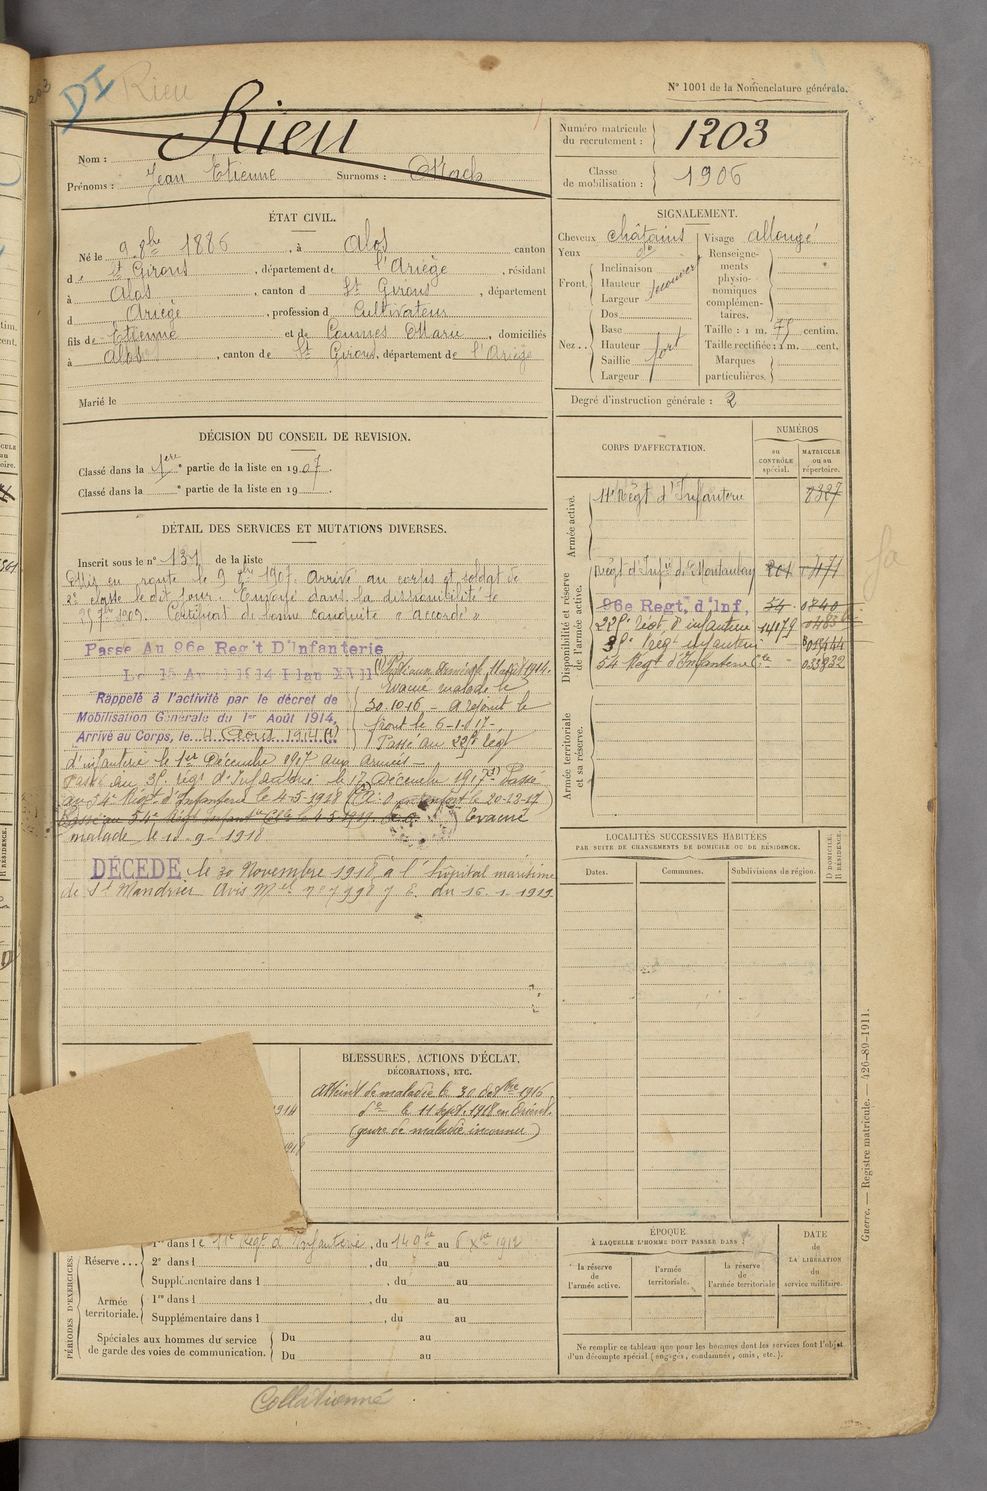 DI Rieu
N° 1001 de la Nomenclature générale.
Nom : Rieu
Prénoms : Jean Etienne Surnoms :
Numéro matricule du recrutement : 1203
Classe de mobilisation : 1906
ÉTAT CIVIL.
Né le 9 8bre 1886, à Alos canton
d St Girons, département de l'Ariège, résidant
à Alos, canton d St Girons, département
d Ariège, profession de Cultivateur
fils de Etienne et de Caumes Marie, domiciliés
à Alos, canton de St Girons, département de l'Ariège
Marié le
SIGNALEMENT.
Cheveux châtains Visage allongé
Yeux do
Front. Inclinaison
Hauteur
Largeur
Nez.. Dos
Base
Hauteur fort
Saillie
Largeur
Renseignements physionomiques complémentaires.
Taille : 1 m. centim.
Taille rectifiée : 1 m. cent.
Marques particulières.
Degré d'instruction générale : 2
DÉCISION DU CONSEIL DE REVISION.
Classé dans la 1ere partie de la liste en 1907.
Classé dans la e partie de la liste en 19 .
CORPS D'AFFECTATION.
NUMÉROS
au CONTRÔLE spécial.
MATRICULE ou au répertoire.
Armée active.
11e Régt d'Infanterie 8327
Disponibilité et réserve de l'armée active.
Régt d'Infie de Montauban
96e Regt. d'Inf. 54
22e régt d'infanterie 14179
3e régt infanterie
54 Régt d'Infanterie Cle
Armée territoriale et sa réserve.
DÉTAIL DES SERVICES ET MUTATIONS DIVERSES.
Inscrit sous le n° 131 de la liste
Mis en route le 9 8bre 1907. Arrivé au corps et soldat de
2e classe le dit jour. Envoyé dans la disponibilité le
25 7bre 1909. Certificat de bonne conduite « accordé »
Passé Au 96e Reg't D'Infanterie
Le 15 Avril 1914 Plan XVII
Rappelé à l'activité par le décret de
Mobilisation Générale du 1er Août 1914,
Arrivé au Corps, le 4 Août 1914 (1)
11 août 1914.
Evacué malade le
30.10.16 - A rejoint le
front le 6-1-17-
Passé au 22e régt
d'infanterie le 1er Décembre 1917 aux armées -
Passé au 3e régt d'Infanterie le 17 Décembre 1917 Passé
au 54e Régt d'Infanterie le 4-5-1918
Evacué
malade le 11.9.1918
DÉCÉDÉ le 30 Novembre 1918 à l'hôpital maritime
de St Mandrier Avis Mel n° 7998 du 16.1.1919.
LOCALITÉS SUCCESSIVES HABITÉES
PAR SUITE DE CHANGEMENTS DE DOMICILE OU DE RÉSIDENCE.
Dates. Communes. Subdivisions de région. D DOMICILE. R RÉSIDENCE.
BLESSURES, ACTIONS D'ÉCLAT,
DÉCORATIONS, ETC.
Atteint de maladie le 30 octobre 1916
do le 11 Sept. 1918 en Orient.
(genre de maladie inconnu)
PÉRIODES D'EXERCICES.
Réserve... 1re dans le 11e Régt d'Infanterie, du 14 9bre au 6 Xbre 1912
2e dans l , du au
Supplémentaire dans l , du au
Armée territoriale. 1re dans l , du au
Supplémentaire dans l , du au
Spéciales aux hommes du service de garde des voies de communication. Du au
Du au
ÉPOQUE
À LAQUELLE L'HOMME DOIT PASSER DANS
la réserve de l'armée active.
l'armée territoriale.
la réserve de l'armée territoriale
DATE de LA LIBÉRATION du service militaire.
Ne remplir ce tableau que pour les hommes dont les services font l'objet
d'un décompte spécial (engagés, condamnés, omis, etc.).
Guerre. — Registre matricule. — 426-89-1911.
Collationné